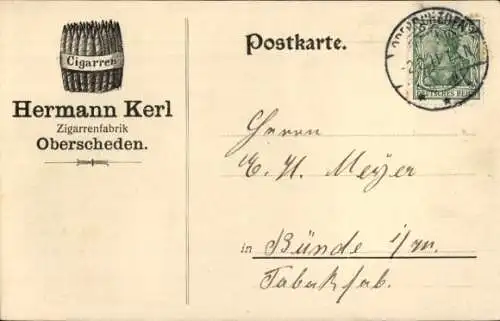 Cigarren
Hermann Kerl
Zigarrenfabrik
Oberscheden.
Postkarte.
DEUTSCHES REICH
Herrn
E. H. Meyer
in Bünde i/W.
Tabakfab.